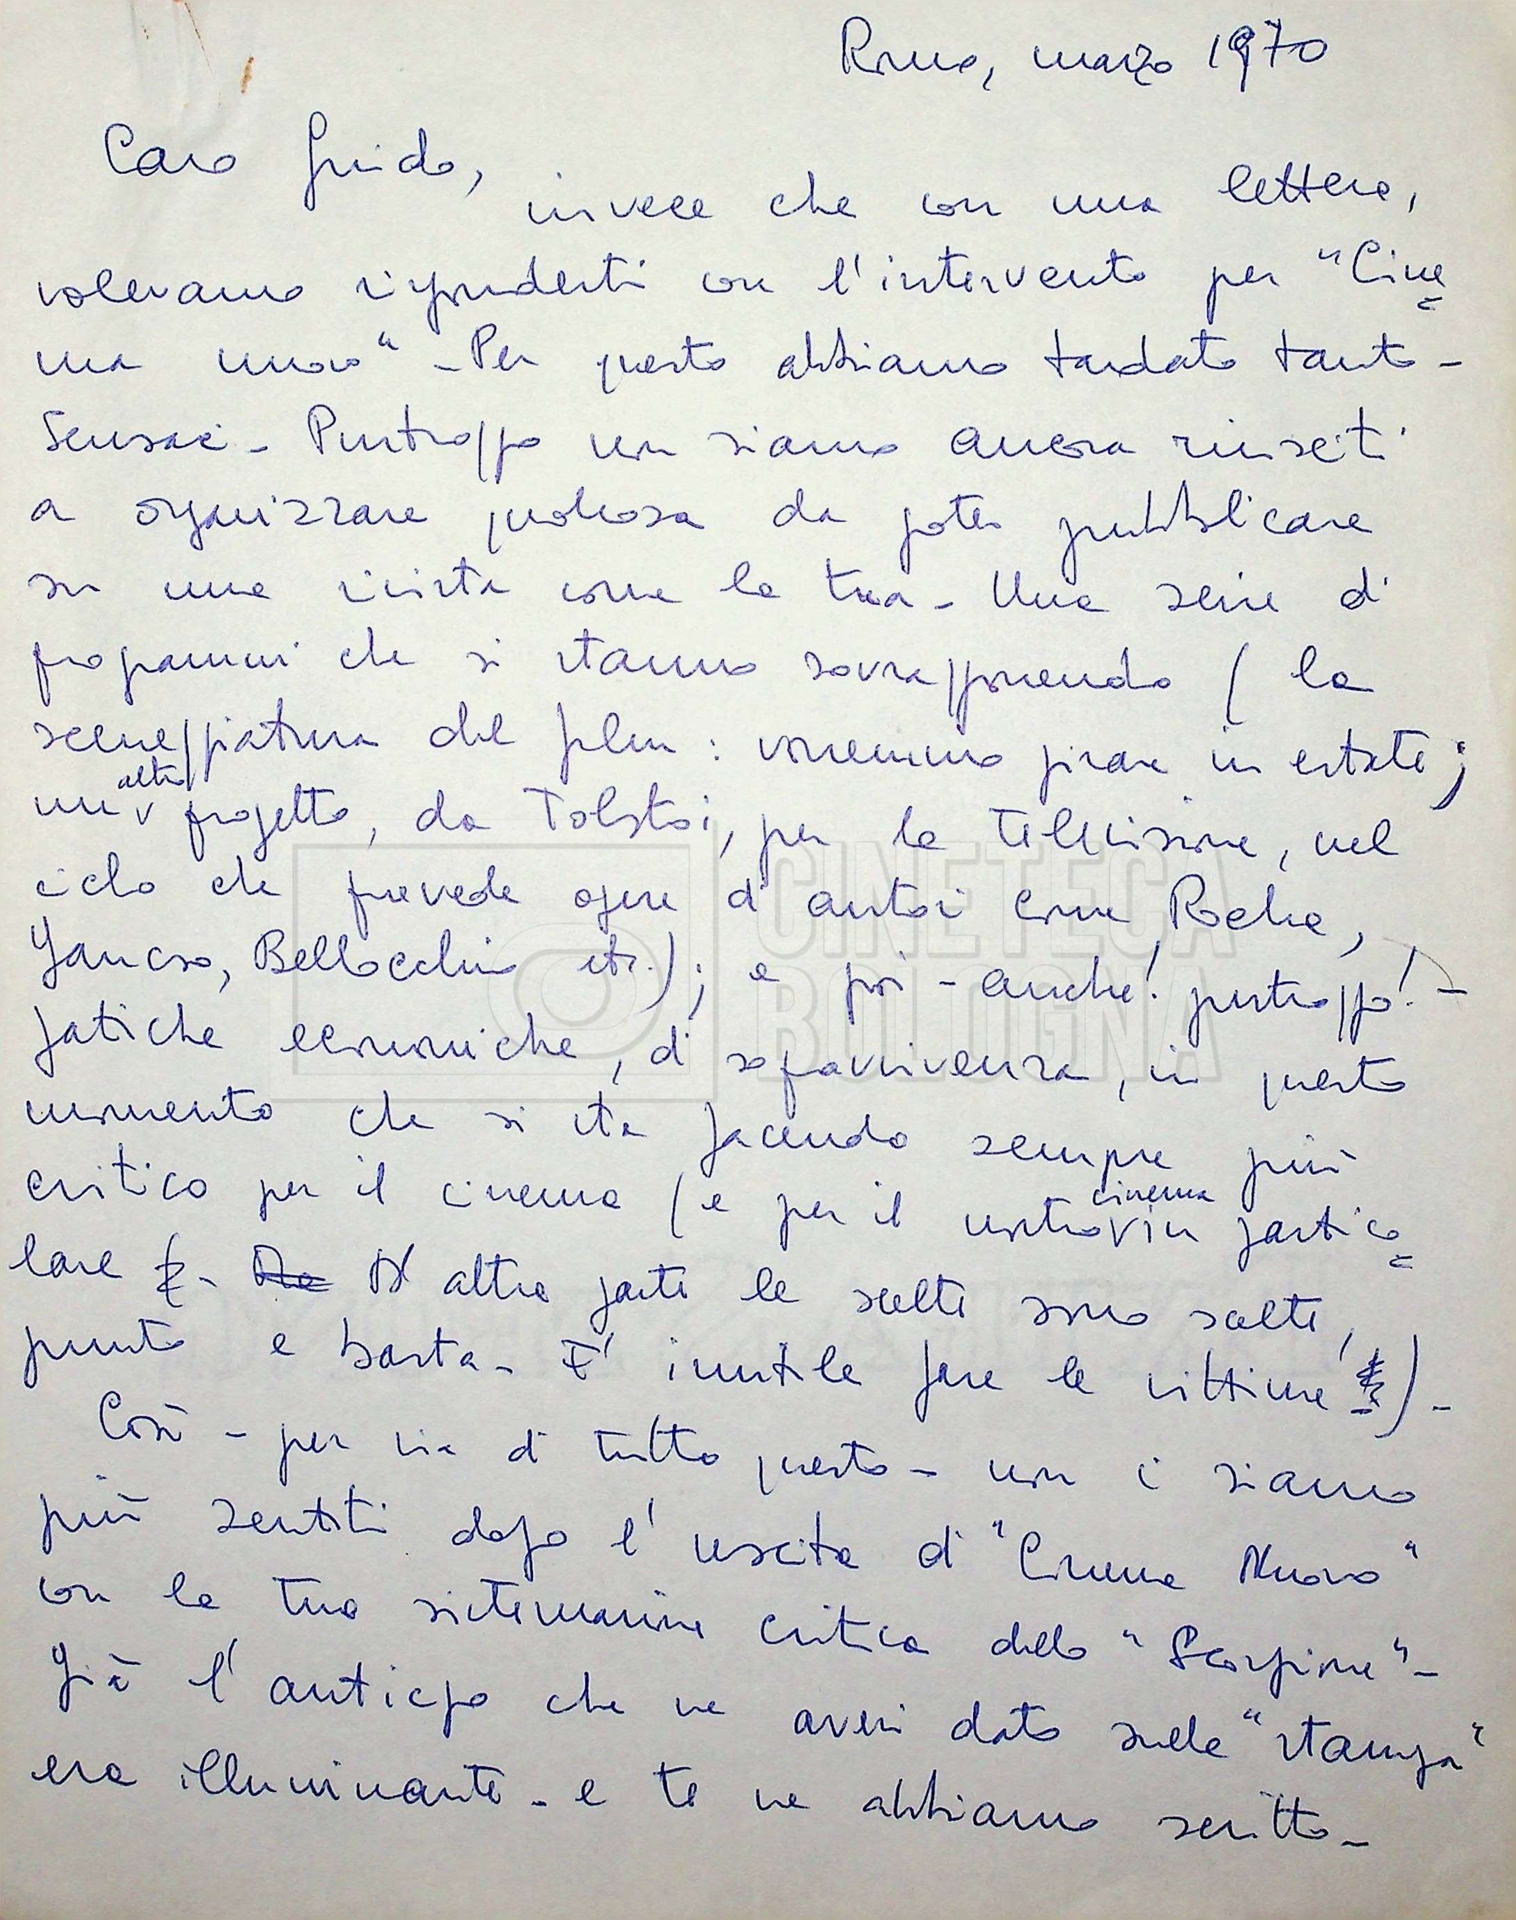 Roma, marzo 1970
Caro Guido,
invece che con una lettera,
volevamo risponderti con l'intervento per "Cine
ma nuovo" - Per questo abbiamo tardato tanto -
Scusaci - Purtroppo non siamo ancora riusciti
a organizzare qualcosa da poter pubblicare
su una rivista come la tua - Una serie di
programmi che si stanno sovrapponendo (la
sceneggiatura del film: vorremmo girare in estate;
un altro progetto, da Tolstoi, per la televisione, nel
ciclo che prevede opere d'autori come Rocha,
Jancso, Bellocchio etc.); e poi - anche! purtroppo! -
fatiche economiche, di sopravvivenza, in questo
momento che si sta facendo sempre più
critico per il cinema (e per il nostro cinema in partico
lare - D'altra parte le scelte sono scelte,
punto e basta - E' inutile fare le vittime!) -
Così - per via di tutto questo - non ci siamo
più sentiti dopo l'uscita di "Cinema Nuovo"
con la tua sistemazione critica dello "Scorpione" -
Già l'anticipo che ne avevi dato sulla "Stampa"
era illuminante - e te ne abbiamo scritto -
CINETECA
BOLOGNA